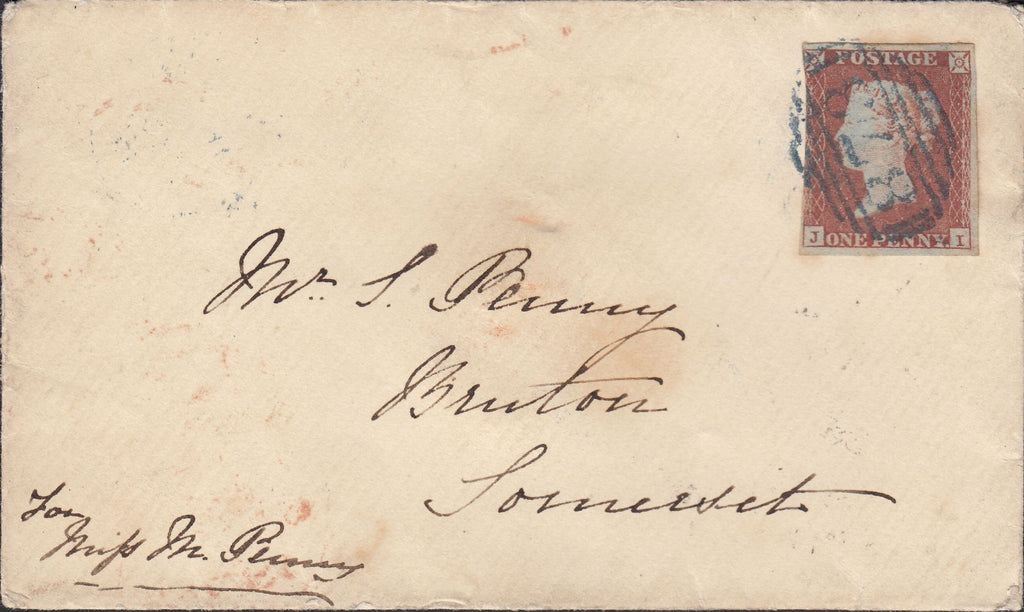 POSTAGE
J ONE PENNY. I
Mr. S. Penny
Bruton
Somerset
For
Miſs M. Penny